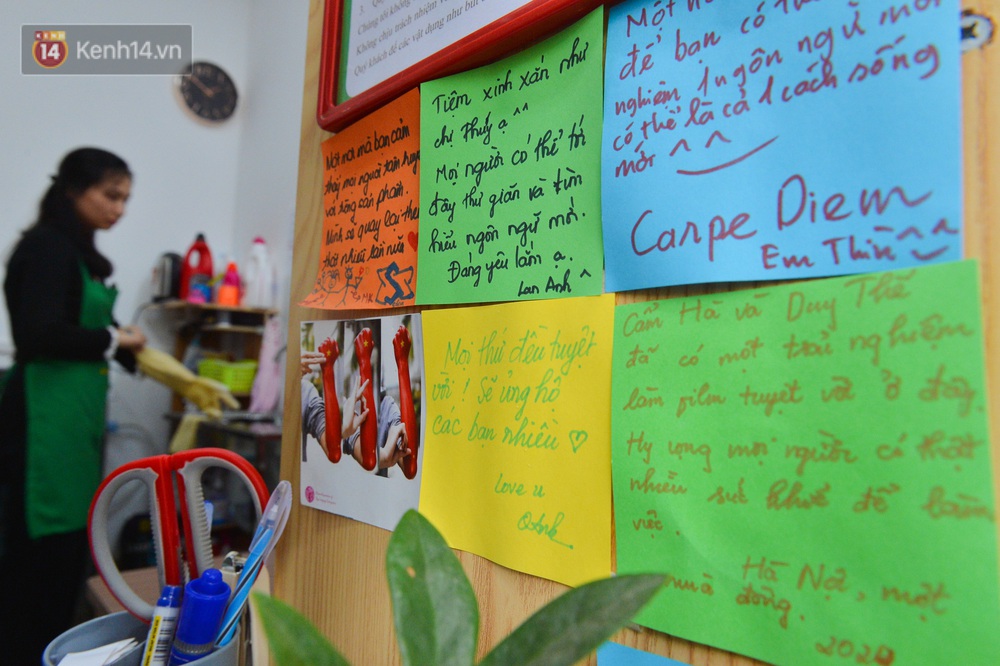 14 Kenh14.vn
3. Quy
Chúng tôi không
Không chịu trách nhiệm v
Quý khách để các vật dụng như bút
Một nơi mà bạn cảm
thấy mọi người tâm huyết
với từng sản phẩm.
Mình sẽ quay lại thêm
thật nhiều lần nữa
MK
Tiệm xinh xắn như
chị Thúy ạ ^^
Mọi người có thể tới
đây thư giãn và tìm
hiểu ngôn ngữ mới.
Đáng yêu lắm ạ.
Lan Anh ^
Một n
để bạn có th
nghiệm 1 ngôn ngữ mới
có thể là cả 1 cách sống
mới ^ ^
Carpe Diem
Em Thìn ^^
Mọi thứ đều tuyệt
vời! Sẽ ủng hộ
các bạn nhiều ♡
Love u
Q.Anh
Cẩm Hà và Duy Thế
đã có một trải nghiệm
làm film tuyệt vời ở đây.
Hy vọng mọi người có thật
nhiều sức khoẻ để làm
việc.
Hà Nội, một
mùa đông.
2024